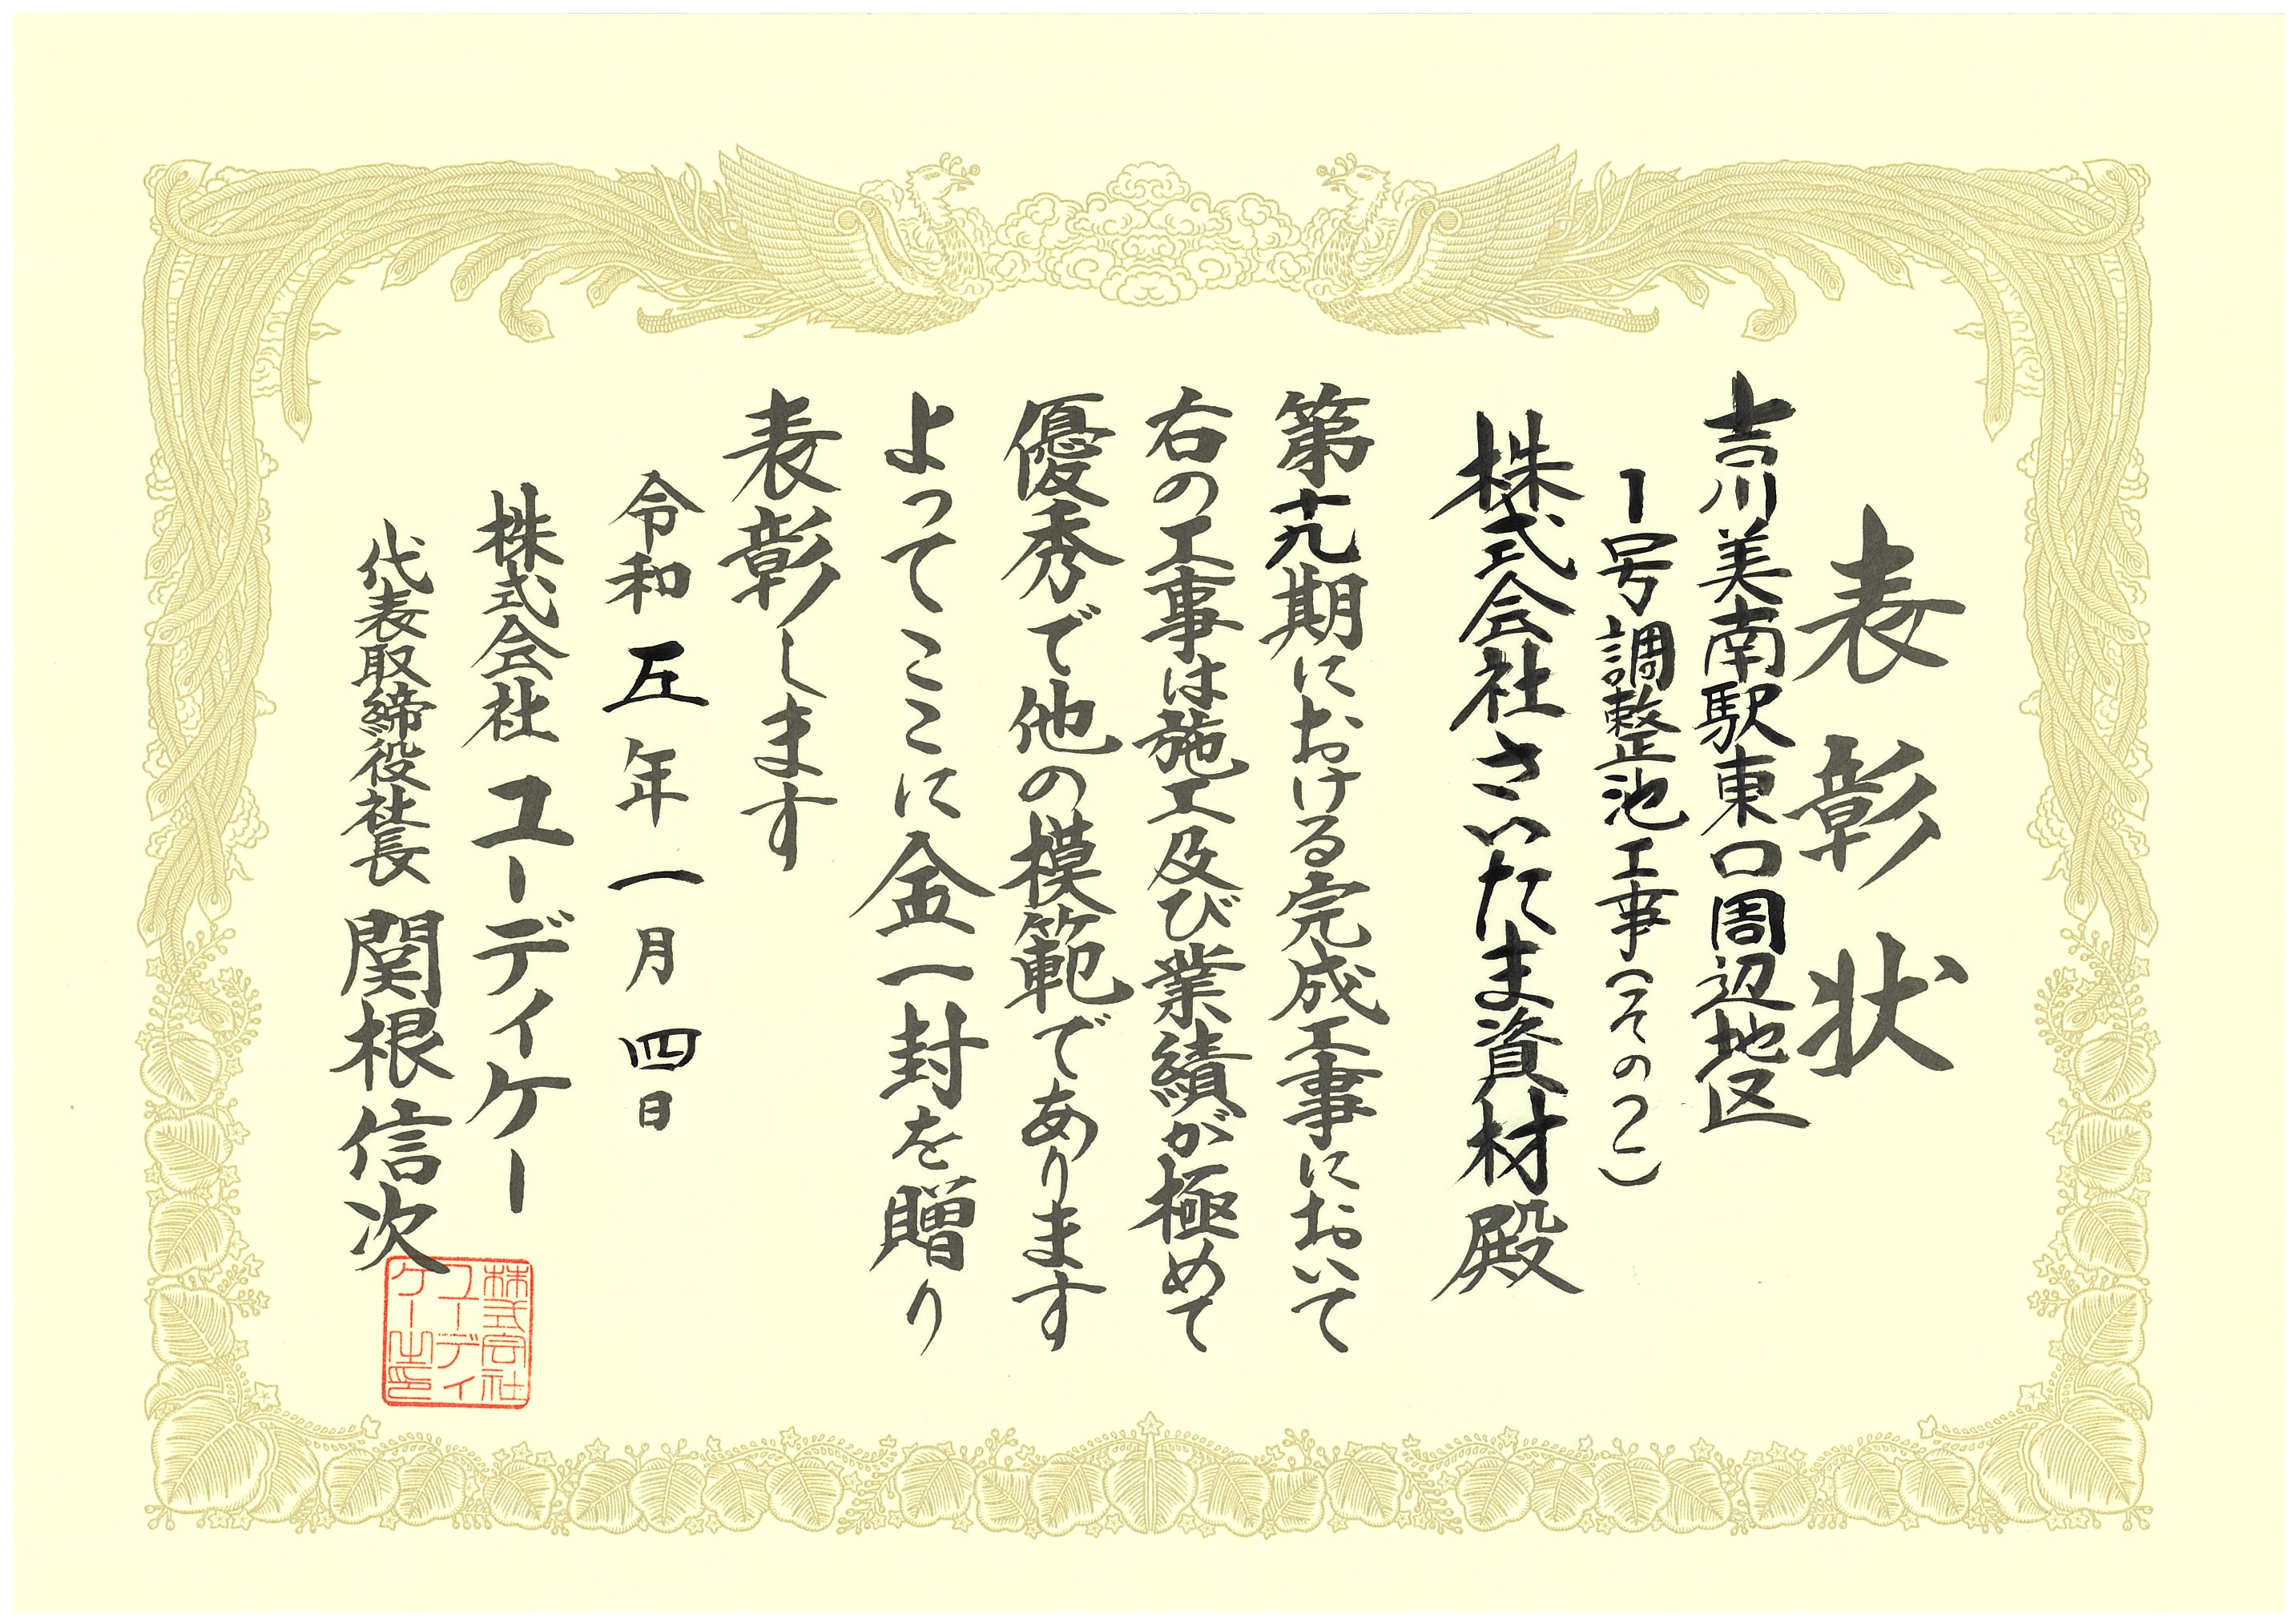 表彰状
吉川美南駅東口周辺地区
1号調整池工事(その2)
株式会社さいたま資材殿
第十九期における完成工事において
右の工事は施工及び業績が極めて
優秀で他の模範であります
よってここに金一封を贈り
表彰します
令和五年一月四日
株式会社ユーディケー
代表取締役社長 関根信次
株式会社
ユーディ
ケー之印